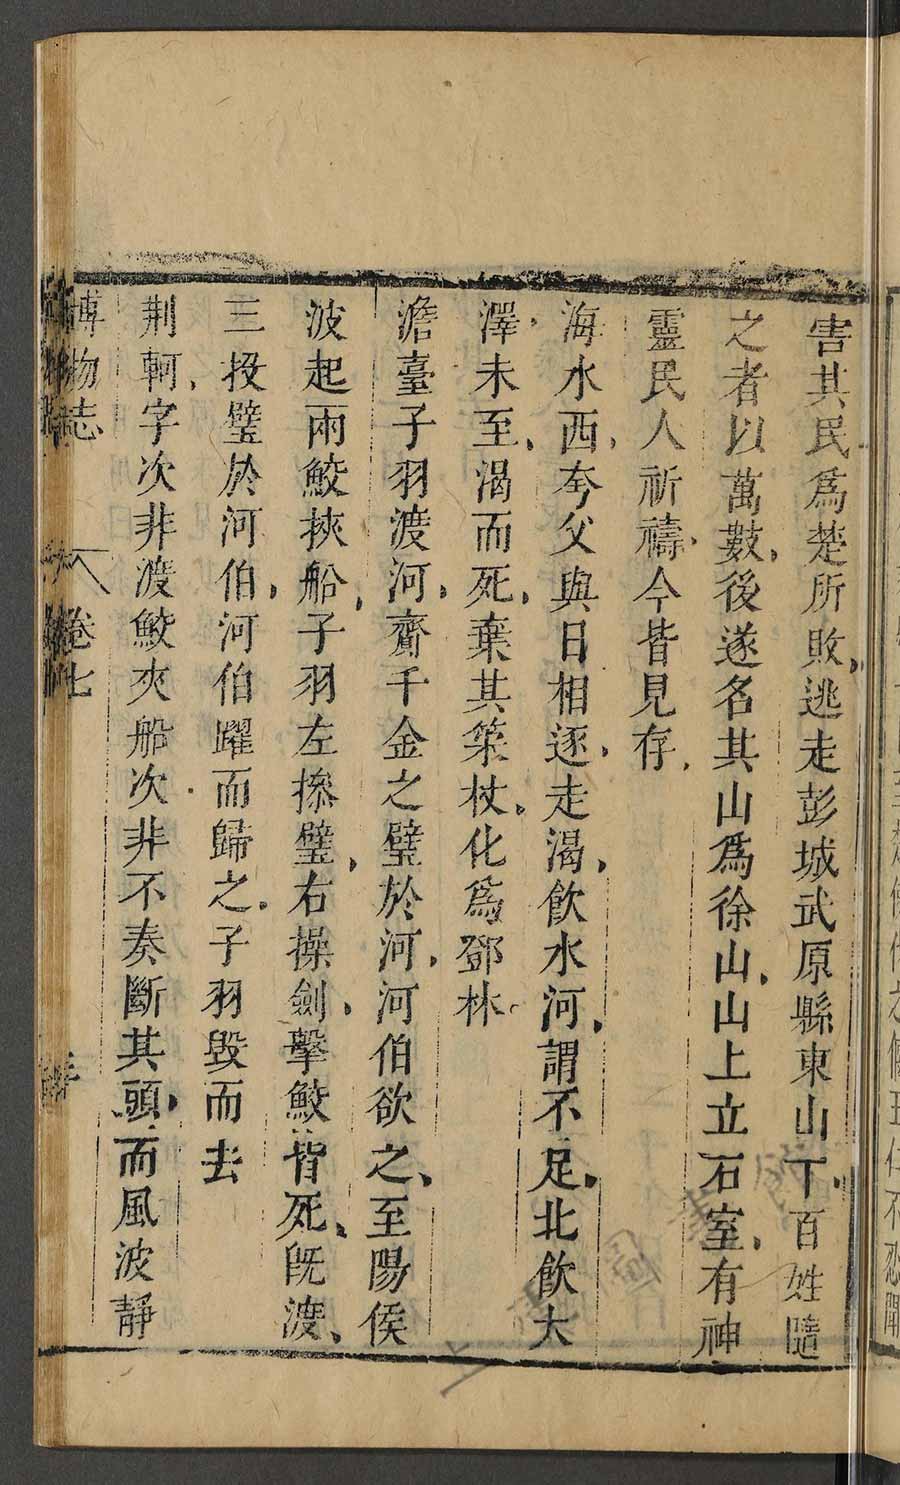 害其民爲楚所敗逃走彭城武原縣東山下百姓隨
之者以萬數後遂名其山爲徐山山上立石室有神
靈民人祈禱今皆見存
海水西夸父與日相逐走渴飲水河謂不足北飲大
澤未至渴而死棄其策杖化爲鄧林
澹臺子羽渡河齎千金之璧於河河伯欲之至陽侯
波起兩鮫挾船子羽左摻璧右操劍擊鮫皆死旣渡
三投璧於河伯河伯躍而歸之子羽毀而去
荆軻字次非渡鮫夾船次非不奏斷其頭而風波靜
博物志
卷七